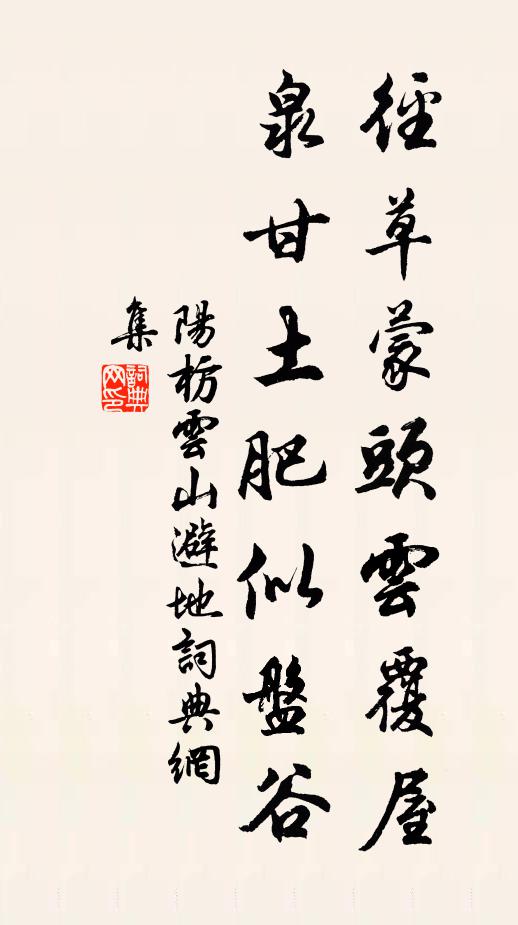 徑草蒙頭雲覆屋
泉甘土肥似盤谷
陽枋雲山避地詞典網
集
詞典
网印